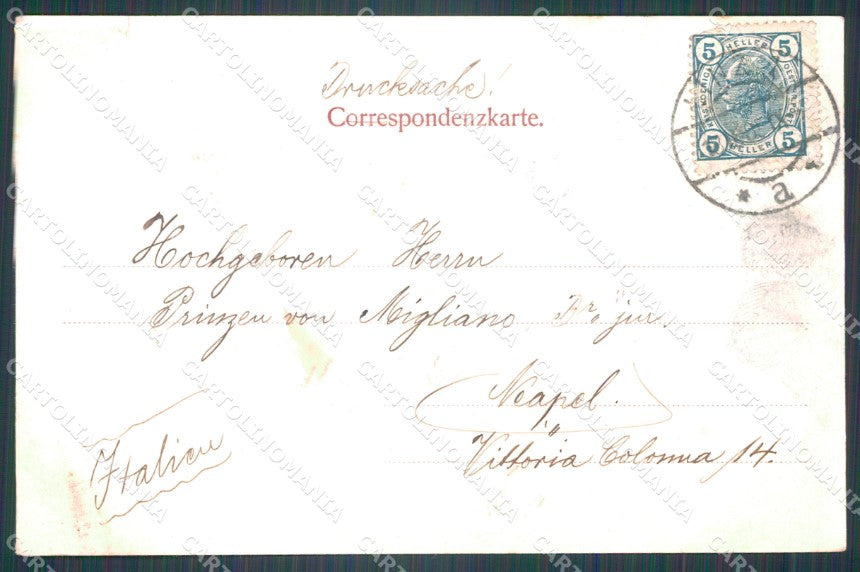 Drucksache!
Correspondenzkarte.
5 HELLER 5
5 HELLER 5
* a *
Hochgeboren Herrn
Prinzen von Migliano, Dr. jur.
Neapel.
Vittoria Colonna 14.
Italien
CARTOLINOMANIA